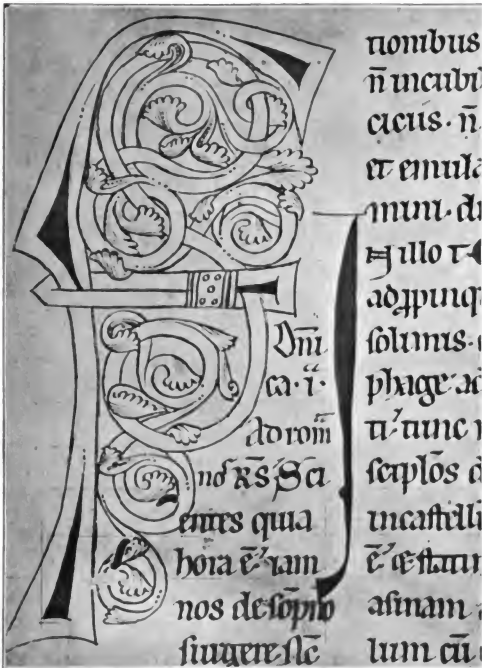 Dn̄i
ca · i ·
Ad rom̄
nōs Scı
entes quia
hora ē iam
nos de sōpno
surgere
tionibus
n̄ incubi
cicus · n̄
et emula
mini · du
illo
adp̱pinq
solimis ·
phage ad
ti tunc
scıplōs d
in castellū
ē
asinam a
lum cū